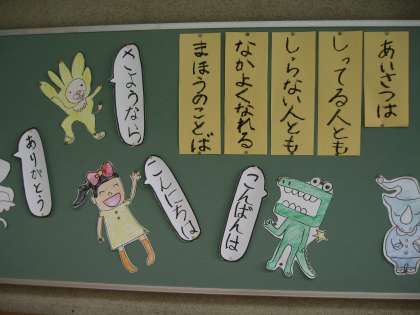 あいさつは
しってる人とも
しらない人とも
なかよくなれる
まほうのことば
さようなら
ありがとう
こんにちは
こんばんは